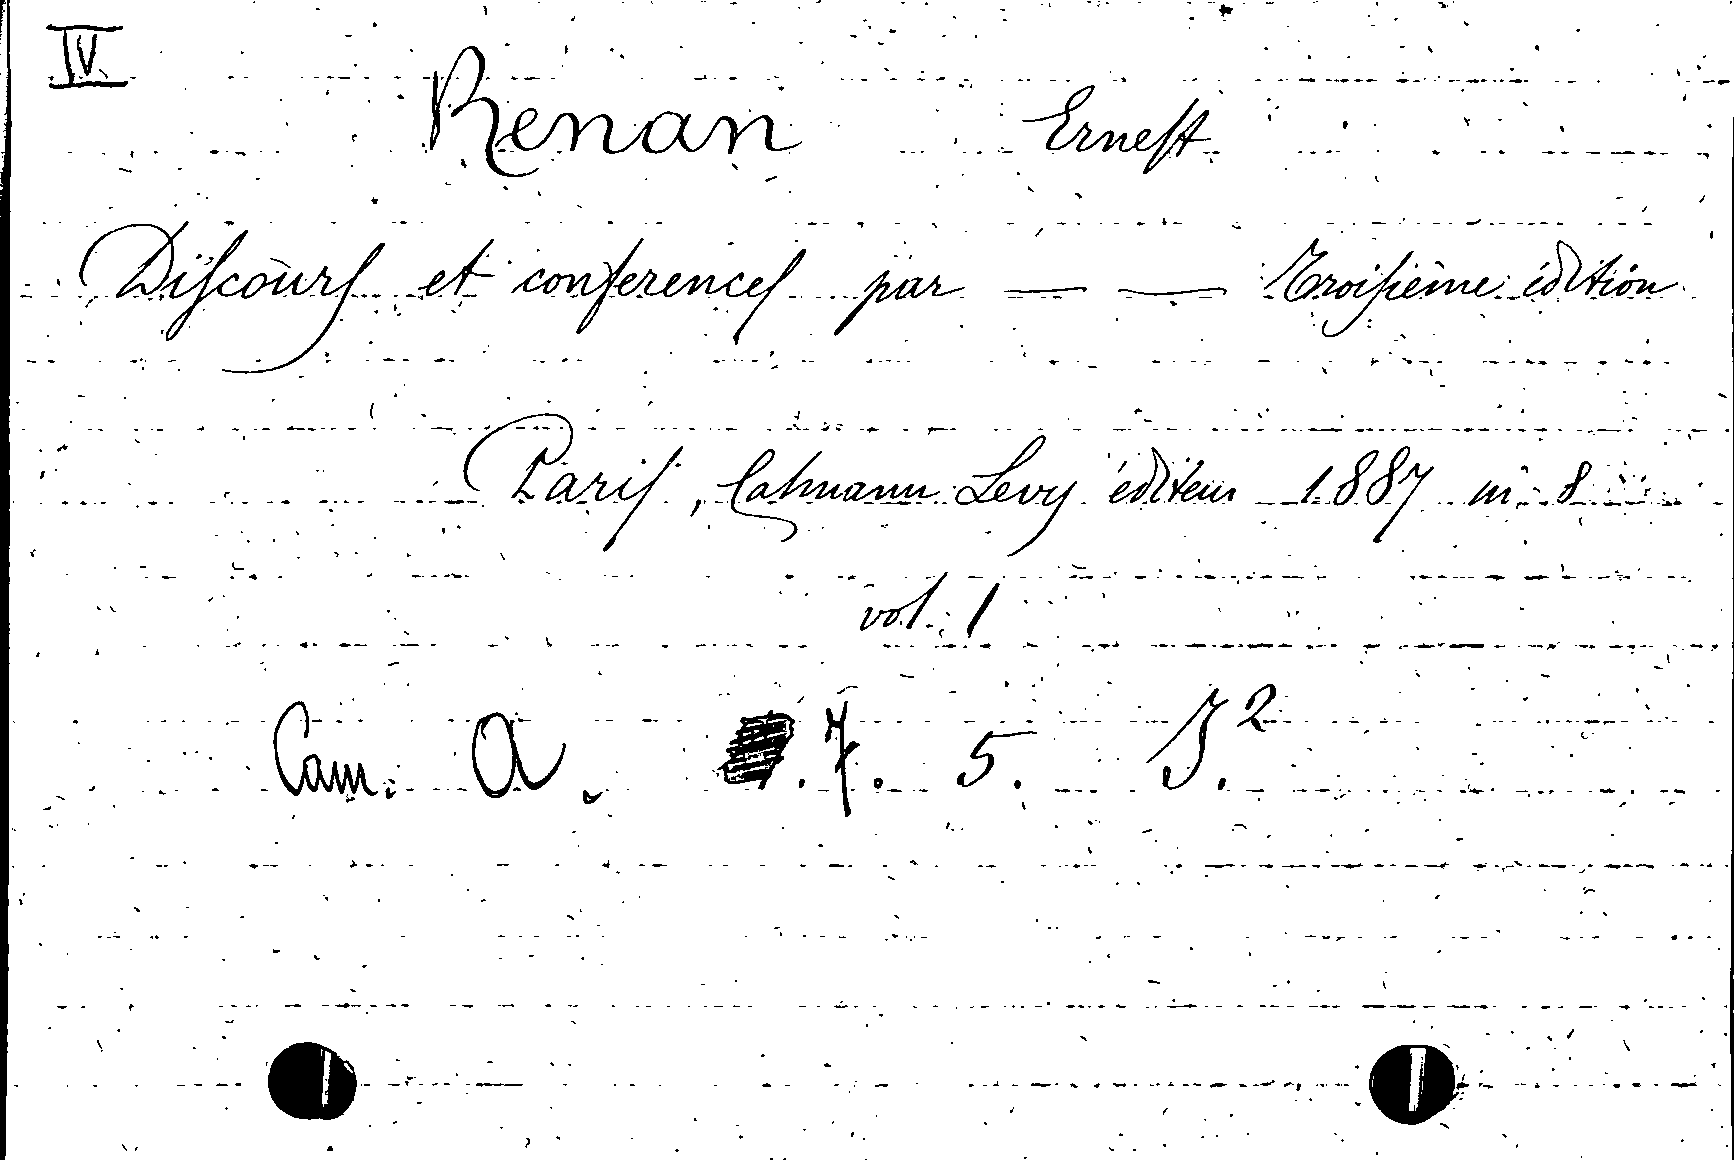 IV
Renan Ernest
Discours et conferences par — — Troisième édition
Paris, Calmann Levy éditeur 1887 in 8
vol. 1
Cam. A. 7. 5. J.2